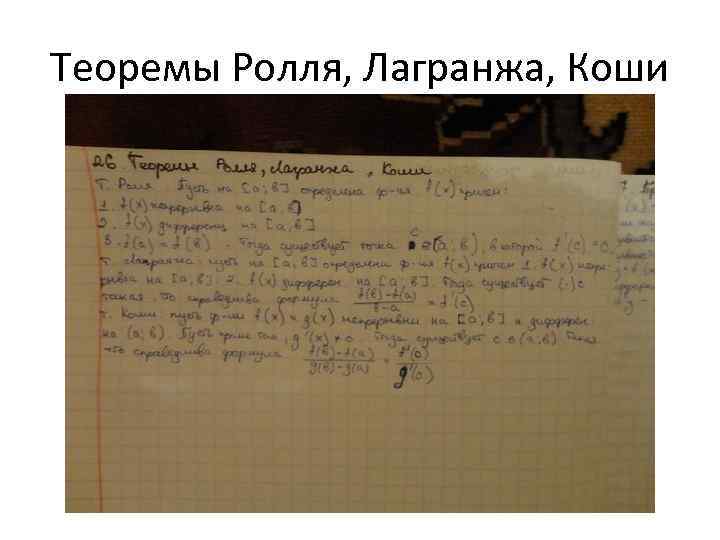 Теоремы Ролля, Лагранжа, Коши
26 Теоремы Ролля, Лагранжа, Коши
Т. Роля. Пусть на [a;в] определена ф-ия f(x) причем:
1. f(x) непрерывна на [a,в]
2. f(x) дифференц на [a,в]
3. f(a) = f(в). Тогда существует точка c ∈ (a;в), в которой f'(c)=0.
Т. Лагранжа: пусть на [a,в] определена ф-ия f(x) причем 1. f(x) непре-
рывна на [a;в]; 2. f(x) дифферен. на [a;в]. Тогда существует (·) c
такая, что справедлива формула f(в)-f(a) / в-a = f'(c)
т. Коши пусть ф-ии f(x) и g(x) непрерывны на [a,в] и дифферен.
на (a;в). Пусть кроме того, g'(x) ≠ 0. Тогда существует c ∈ (a,в). Такая
что справедлива формула f(в)-f(a) / g(в)-g(a) = f'(c) / g'(c)